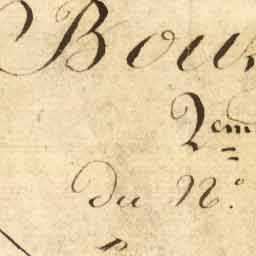 Bou
2em
du N.o